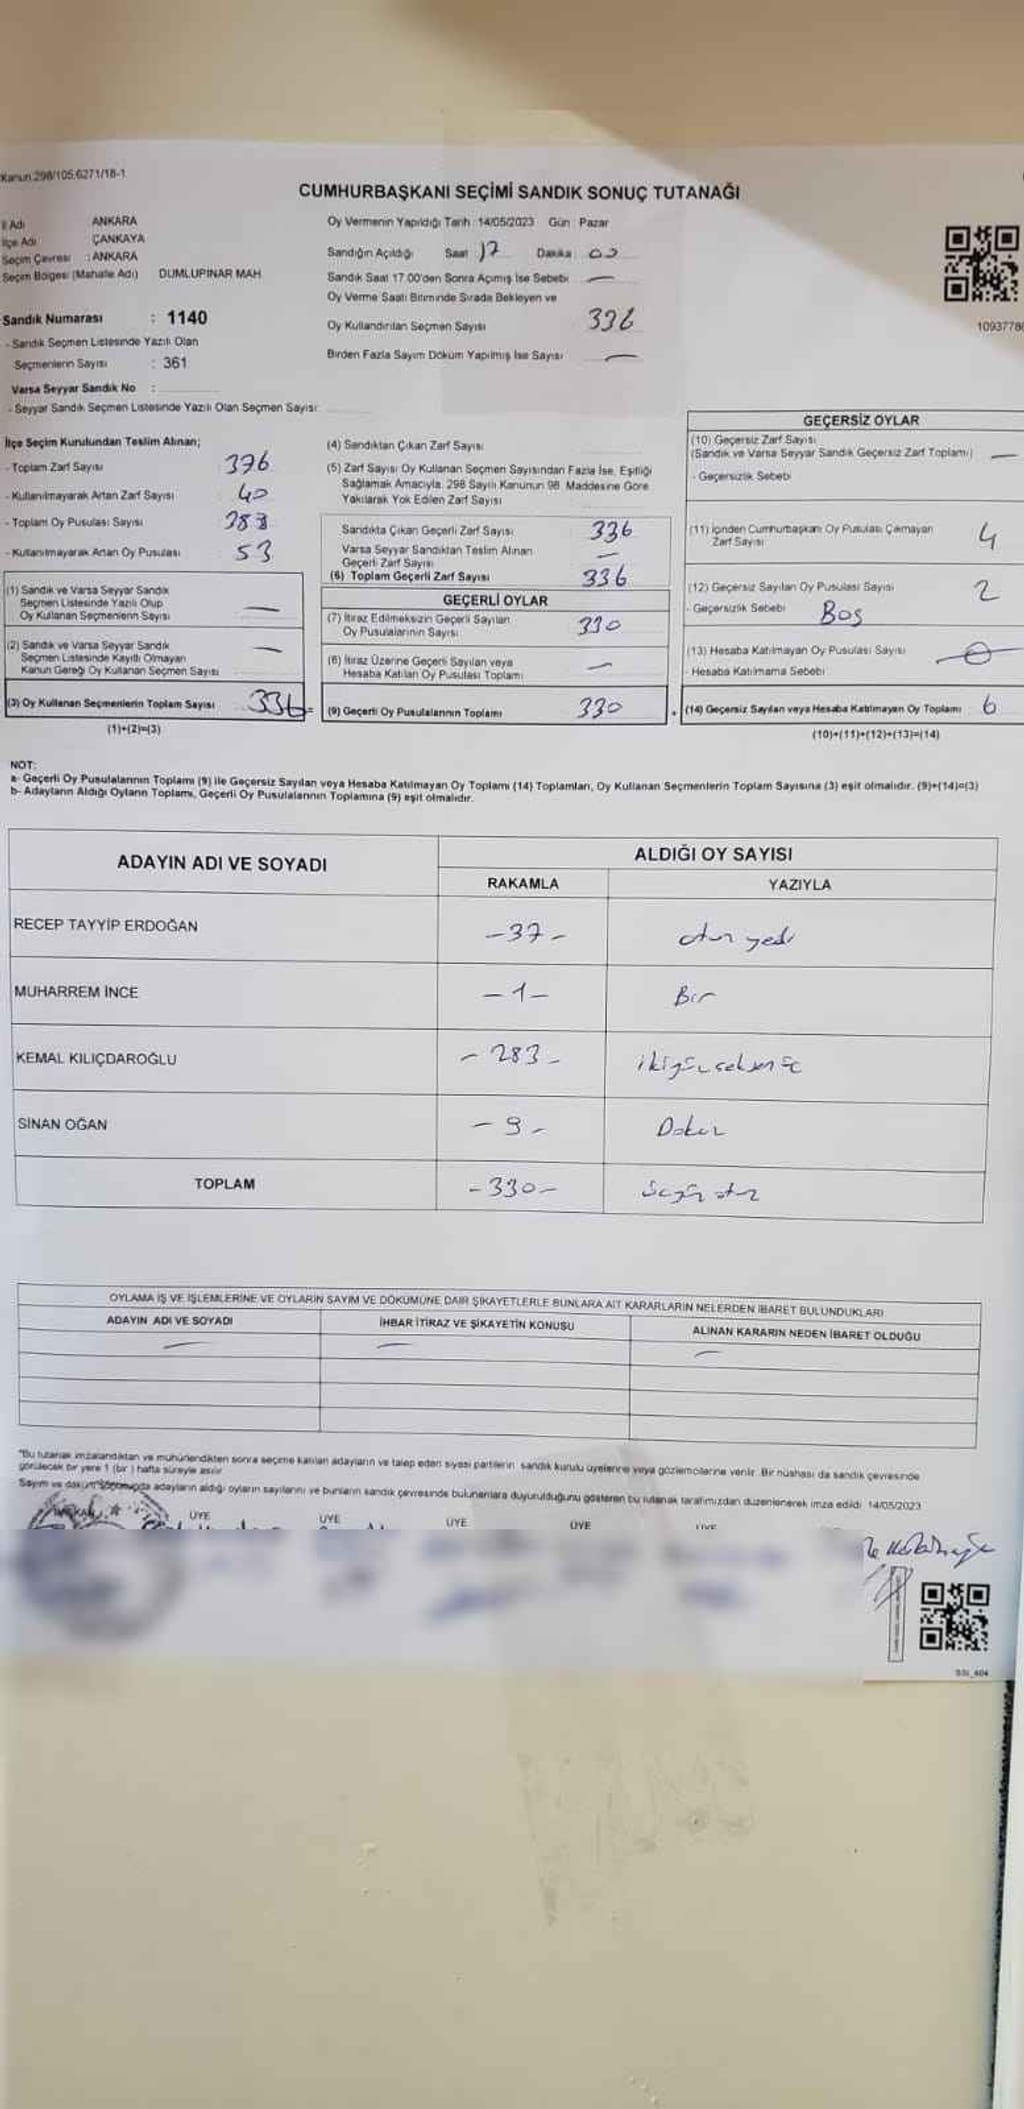 Kanun 298/105,6271/18-1
CUMHURBAŞKANI SEÇİMİ SANDIK SONUÇ TUTANAĞI
İl Adı ANKARA
İlçe Adı ÇANKAYA
Seçim Çevresi : ANKARA
Seçim Bölgesi (Mahalle Adı) DUMLUPINAR MAH
Sandık Numarası : 1140
- Sandık Seçmen Listesinde Yazılı Olan
Seçmenlerin Sayısı : 361
Varsa Seyyar Sandık No :
- Seyyar Sandık Seçmen Listesinde Yazılı Olan Seçmen Sayısı:
Oy Vermenin Yapıldığı Tarih : 14/05/2023 Gün : Pazar
Sandığın Açıldığı Saat 17 Dakika : 00
Sandık Saat 17.00'den Sonra Açılmış İse Sebebi —
Oy Verme Saati Bitiminde Sırada Bekleyen ve
Oy Kullandırılan Seçmen Sayısı 336
Birden Fazla Sayım Döküm Yapılmış İse Sayısı —
1093778
İlçe Seçim Kurulundan Teslim Alınan;
- Toplam Zarf Sayısı 376
- Kullanılmayarak Artan Zarf Sayısı 40
- Toplam Oy Pusulası Sayısı
- Kullanılmayarak Artan Oy Pusulası 53
(1) Sandık ve Varsa Seyyar Sandık
Seçmen Listesinde Yazılı Olup
Oy Kullanan Seçmenlerin Sayısı —
(2) Sandık ve Varsa Seyyar Sandık
Seçmen Listesinde Kayıtlı Olmayan
Kanun Gereği Oy Kullanan Seçmen Sayısı —
(3) Oy Kullanan Seçmenlerin Toplam Sayısı 336
(1)+(2)=(3)
(4) Sandıktan Çıkan Zarf Sayısı
(5) Zarf Sayısı Oy Kullanan Seçmen Sayısından Fazla İse, Eşitliği
Sağlamak Amacıyla, 298 Sayılı Kanunun 98. Maddesine Göre
Yakılarak Yok Edilen Zarf Sayısı
Sandıkta Çıkan Geçerli Zarf Sayısı 336
Varsa Seyyar Sandıktan Teslim Alınan
Geçerli Zarf Sayısı —
(6) Toplam Geçerli Zarf Sayısı 336
GEÇERLİ OYLAR
(7) İtiraz Edilmeksizin Geçerli Sayılan
Oy Pusulalarının Sayısı 330
(8) İtiraz Üzerine Geçerli Sayılan veya
Hesaba Katılan Oy Pusulası Toplamı —
(9) Geçerli Oy Pusulalarının Toplamı 330
GEÇERSİZ OYLAR
(10) Geçersiz Zarf Sayısı
(Sandık ve Varsa Seyyar Sandık Geçersiz Zarf Toplamı) —
- Geçersizlik Sebebi
(11) İçinden Cumhurbaşkanı Oy Pusulası Çıkmayan
Zarf Sayısı 4
(12) Geçersiz Sayılan Oy Pusulası Sayısı 2
- Geçersizlik Sebebi Boş
(13) Hesaba Katılmayan Oy Pusulası Sayısı
- Hesaba Katılmama Sebebi
(14) Geçersiz Sayılan veya Hesaba Katılmayan Oy Toplamı 6
(10)+(11)+(12)+(13)=(14)
NOT:
a- Geçerli Oy Pusulalarının Toplamı (9) ile Geçersiz Sayılan veya Hesaba Katılmayan Oy Toplamı (14) Toplamları, Oy Kullanan Seçmenlerin Toplam Sayısına (3) eşit olmalıdır. (9)+(14)=(3)
b- Adayların Aldığı Oyların Toplamı, Geçerli Oy Pusulalarının Toplamına (9) eşit olmalıdır.
ADAYIN ADI VE SOYADI
ALDIĞI OY SAYISI
RAKAMLA YAZIYLA
RECEP TAYYİP ERDOĞAN -37- otuz yedi
MUHARREM İNCE -1- Bir
KEMAL KILIÇDAROĞLU -283- ikiyüz seksen üç
SİNAN OĞAN -9- Dokuz
TOPLAM -330- üçyüz otuz
OYLAMA İŞ VE İŞLEMLERİNE VE OYLARIN SAYIM VE DÖKÜMÜNE DAİR ŞİKAYETLERLE BUNLARA AİT KARARLARIN NELERDEN İBARET BULUNDUKLARI
ADAYIN ADI VE SOYADI İHBAR İTİRAZ VE ŞİKAYETİN KONUSU ALINAN KARARIN NEDEN İBARET OLDUĞU
— — —
"Bu tutanak imzalandıktan ve mühürlendikten sonra seçime katılan adayların ve talep eden siyasi partilerin sandık kurulu üyelerine veya gözlemcilerine verilir. Bir nüshası da sandık çevresinde
görülecek bir yere 1 (bir) hafta süreyle asılır
Sayım ve döküm sonucunda adayların aldığı oyların sayılarını ve bunların sandık çevresinde bulunanlara duyurulduğunu gösteren bu tutanak tarafımızdan düzenlenerek imza edildi 14/05/2023
ÜYE ÜYE ÜYE ÜYE ÜYE